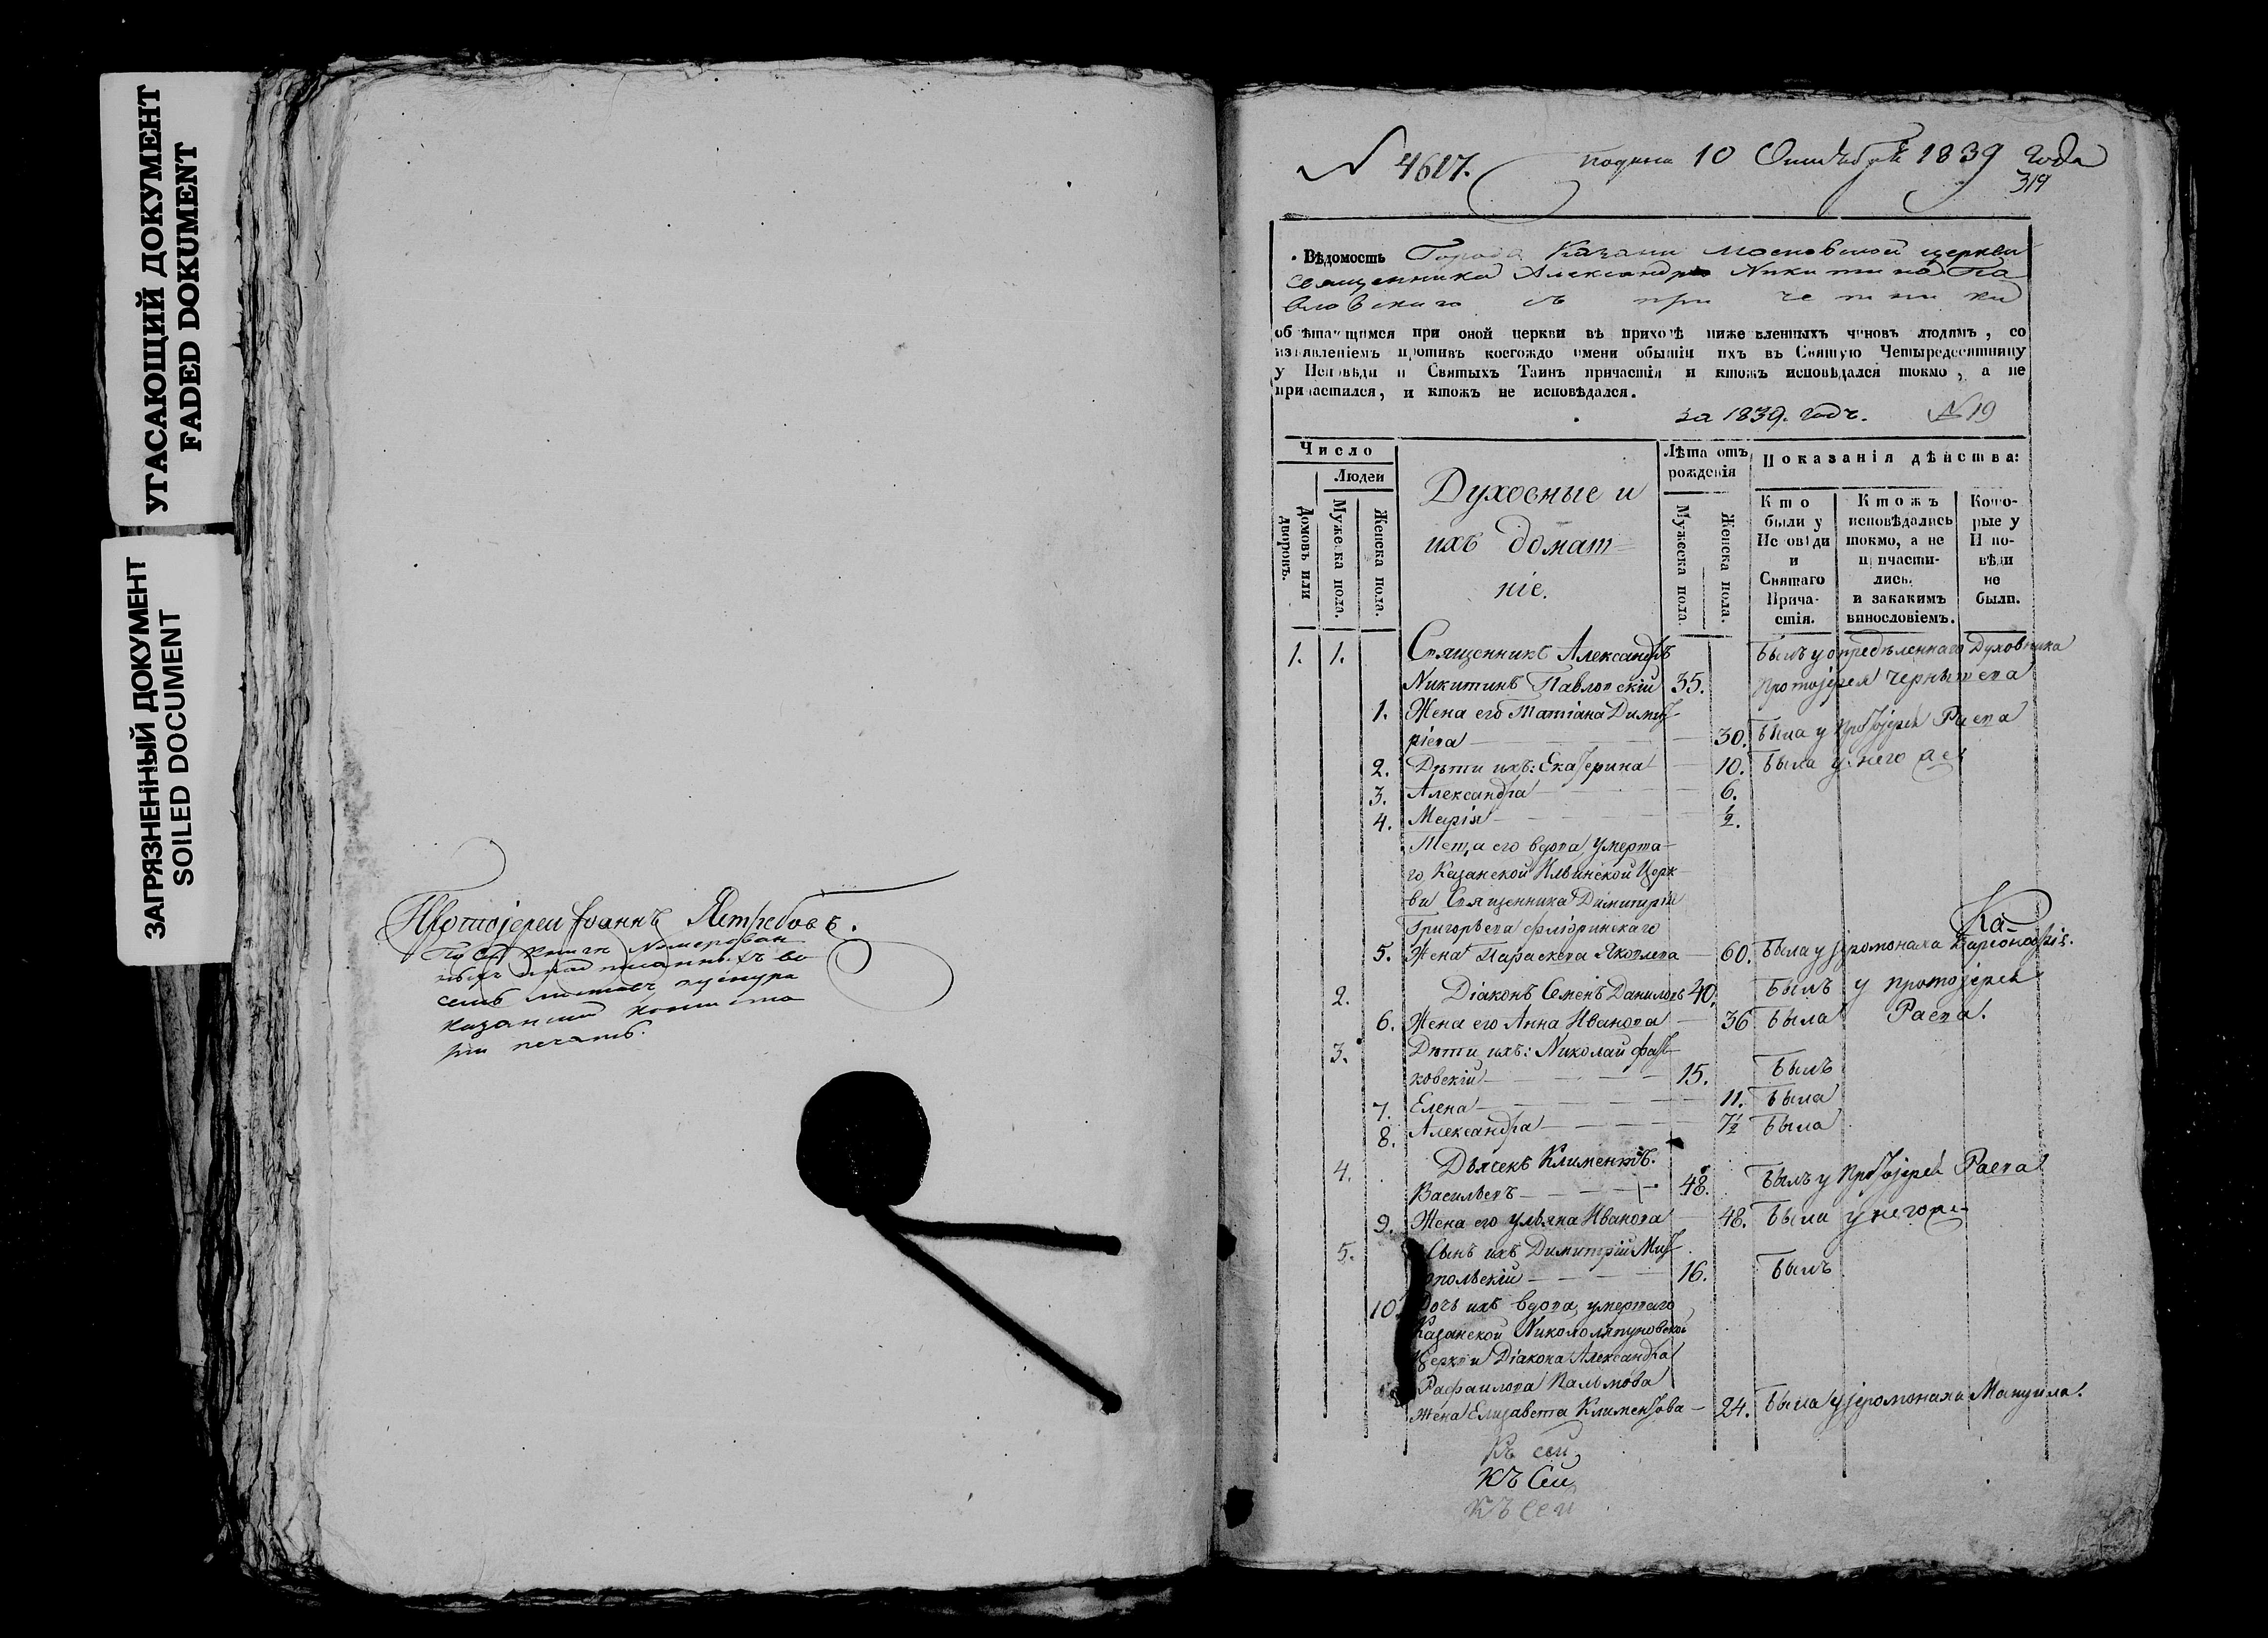 УГАСАЮЩИЙ ДОКУМЕНТ
FADED DOKUMENT
ЗАГРЯЗНЕННЫЙ ДОКУМЕНТ
SOILED DOCUMENT
Протоіерей Іоаннъ Ястребовъ.
печать.
№ 4617.
10 Октября 1839 года
319
Вѣдомость Города Казани Московской церкви
священника Александра Никитина Па
вловскаго съ причетники
обрѣтающимся при оной церкви въ приходѣ нижеявленныхъ чиновъ людямъ, со
изъявленіемъ противъ коегождо имени бытія ихъ въ Святую Четыредесятницу
у Исповѣди и Святыхъ Таинъ причастія и ктожъ исповѣдался токмо, а не
причастился, и ктожъ не исповѣдался.
за 1839. годъ. №19
Число
Людей
Домовъ или дворовъ.
Мужеска пола.
Женска пола.
Духовные и
ихъ домаш=
ніе.
Лѣта отъ
рожденія
Мужеска пола.
Женска пола.
Показанія дѣйства:
Кто
были у
Исповѣди
и
Святаго
Прича-
стія.
Ктожъ
исповѣдались
токмо, а не
причасти-
лись.
и закакимъ
винословіемъ.
Кото-
рые у
Испо-
вѣди
не
были.
1. 1. Священникъ Александръ Былъ у опредѣленнаго Духовника
Никитинъ Павловскій 35. Протоіерея Чернышева
1. Жена его Татіана Димит-
ріева 30. Была у Протоіерея Раева
2. Дѣти ихъ: Екатерина 10. Была у него же
3. Александра 6.
4. Марія ½.
Теща его вдова умерша-
го Казанской Ильинской Церк-
ви Священника Димитрія
Григорьева Флоринскаго
5. Жена Параскева Яковлева 60. Была у іеромонаха Варсонофія.
2. Діаконъ Семенъ Даниловъ 40. Былъ у протоіерея
6. Жена его Анна Иванова 36 Была Раева.
3. Дѣти ихъ: Николай Фал-
ковскій 15. Былъ
7. Елена 11. Была
8. Александра 7½ Была
4. Дьячекъ Климентъ
Васильевъ 48. Былъ у Протоіерея Раева
9. Жена его Ульяна Иванова 48. Была у него же
5. Сынъ ихъ Димитрій Мит-
ропольскій 16. Былъ
10. Дочь ихъ вдова умершаго
Казанской Никололяпуновской
Церкви Діакона Александра
Рафаилова Пальмова
Жена Елизавета Климентова 24. Была у іеромонаха Мануила.
Къ сей
Къ Сей
Къ Сей